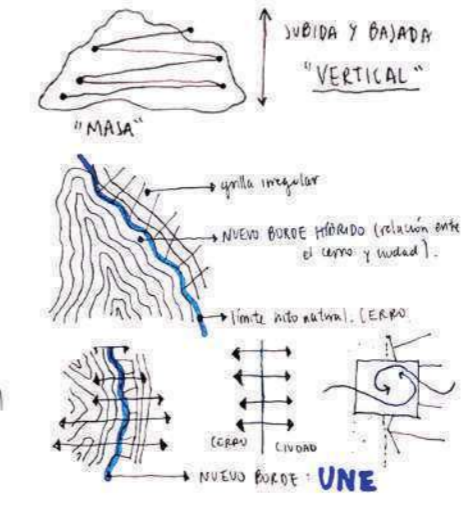 SUBIDA Y BAJADA
"VERTICAL"
"MASA"
grilla irregular
NUEVO BORDE HÍBRIDO (relación entre
el cerro y ciudad).
límite hito natural. CERRO
CERRO
CIUDAD
NUEVO BORDE: UNE